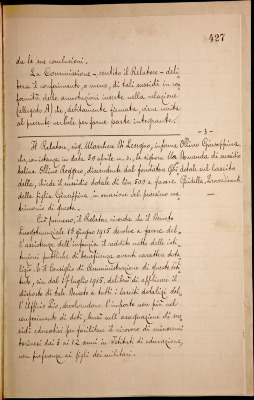 427
da le sue conclusioni.
La Commissione - sentito il Relatore - deli-
bera il conferimento, o meno, di tali sussidi in con
formità delle annotazioni inserte nella relazione
(allegato A) che, debitamente firmata, viene unita
al presente verbale per farne parte integrante.
- 3 -
Il Relatore, sig. Marchese Di informa Ollino Giuseppina,
che con istanza in data 20 aprile u. s., la signora Domanda di sussidio
Ollino Roggero, discendente dal fondatore dotale sul lascito
della, chiede il sussidio dotale di lire 500 a favore
della figlia Giuseppina, in occasione del prossimo ma-
trimonio di questa.
Ciò premesso, il Relatore ricorda che il Decreto
Luogotenenziale 10 giugno 1915 devolve a favore del-
l'assistenza dell'infanzia il reddito netto delle isti-
tuzioni pubbliche di beneficenza aventi carattere dota-
lizio. E il Consiglio di Amministrazione di questo Isti-
tuto, sin dal 17 luglio 1915, deliberò di applicare il
disposto di tale Decreto a tutti i lasciti dotalizi del-
l'Ufficio Pio, devolvendone l'importo non più nel
conferimento di doti, bensì nell'assegnazione di sus-
sidi educativi per facilitare il ricovero di minorenni
torinesi dai 5 ai 12 anni in Istituti di educazione,
con preferenza ai figli dei militari.